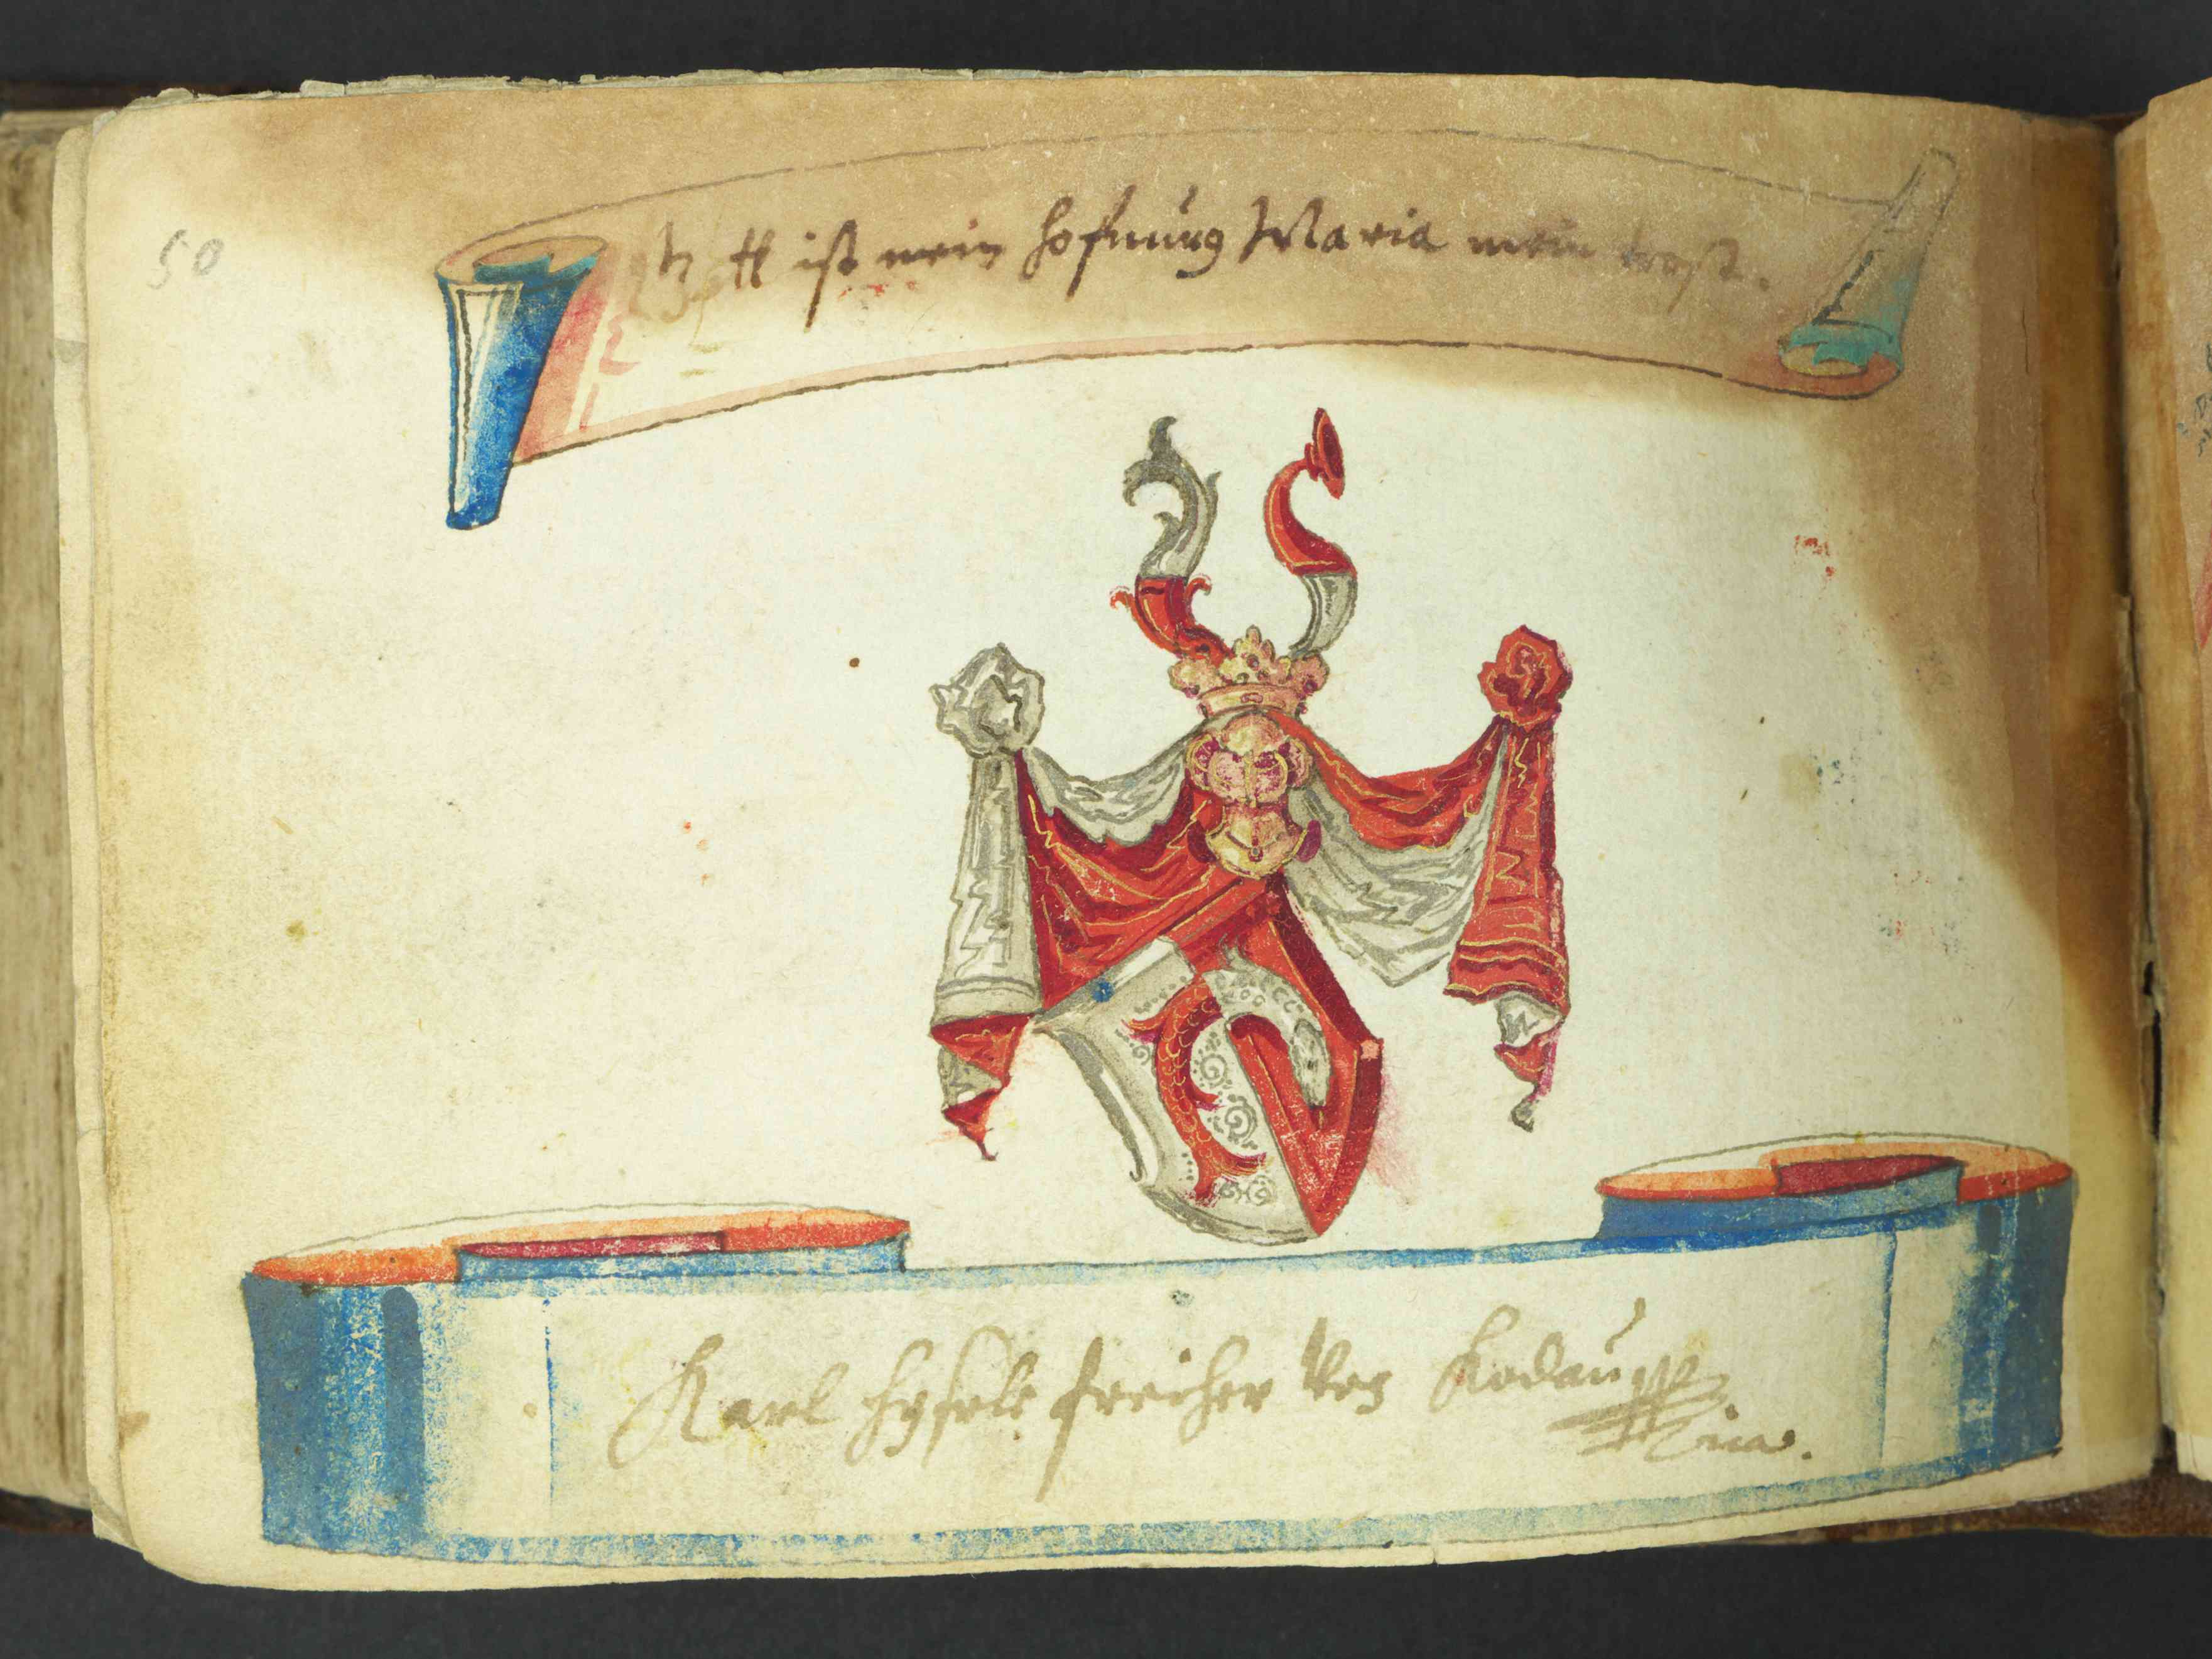 50
Gott ist mein hofnung Maria mein trost.
Karl hysele freiher von Kodaun